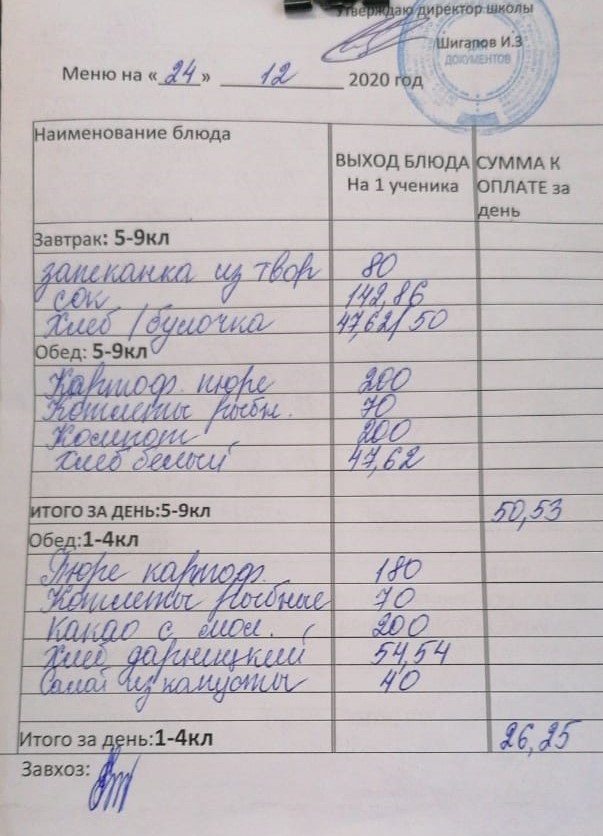 Утверждаю директор школы
Шигапов И.З
ДОКУМЕНТОВ
Меню на «24» 12 2020 год
Наименование блюда
ВЫХОД БЛЮДА На 1 ученика
СУММА К ОПЛАТЕ за день
Завтрак: 5-9кл
запеканка из твор 80
сок 142,86
Хлеб / булочка 47,62/50
Обед: 5-9кл
Картоф. пюре 200
Котлеты рыбн. 70
Компот 200
Хлеб белый 47,62
ИТОГО ЗА ДЕНЬ:5-9кл 50,53
Обед:1-4кл
Пюре картоф. 180
Котлеты рыбные 70
какао с мол. 200
Хлеб дарницкий 54,54
Салат из капусты 40
Итого за день:1-4кл 26,25
Завхоз: